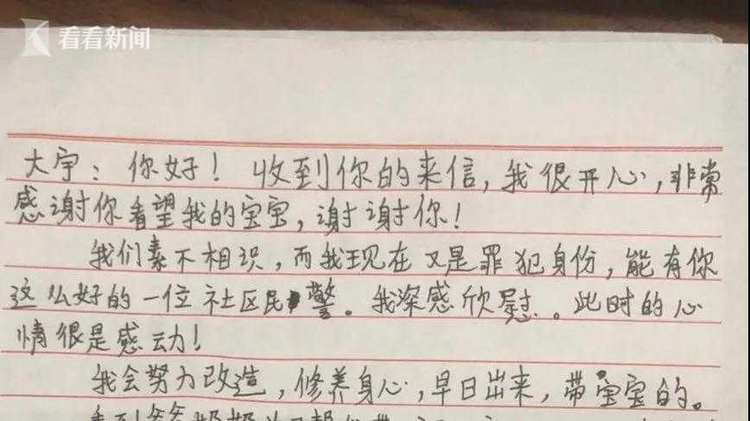 看看新闻
大宇：你好！收到你的来信，我很开心，非常
感谢你看望我的宝宝，谢谢你！
我们素不相识，而我现在又是罪犯身份，能有你
这么好的一位社区民警。我深感欣慰。此时的心
情很是感动！
我会努力改造，修养身心，早日出来，带宝宝的。